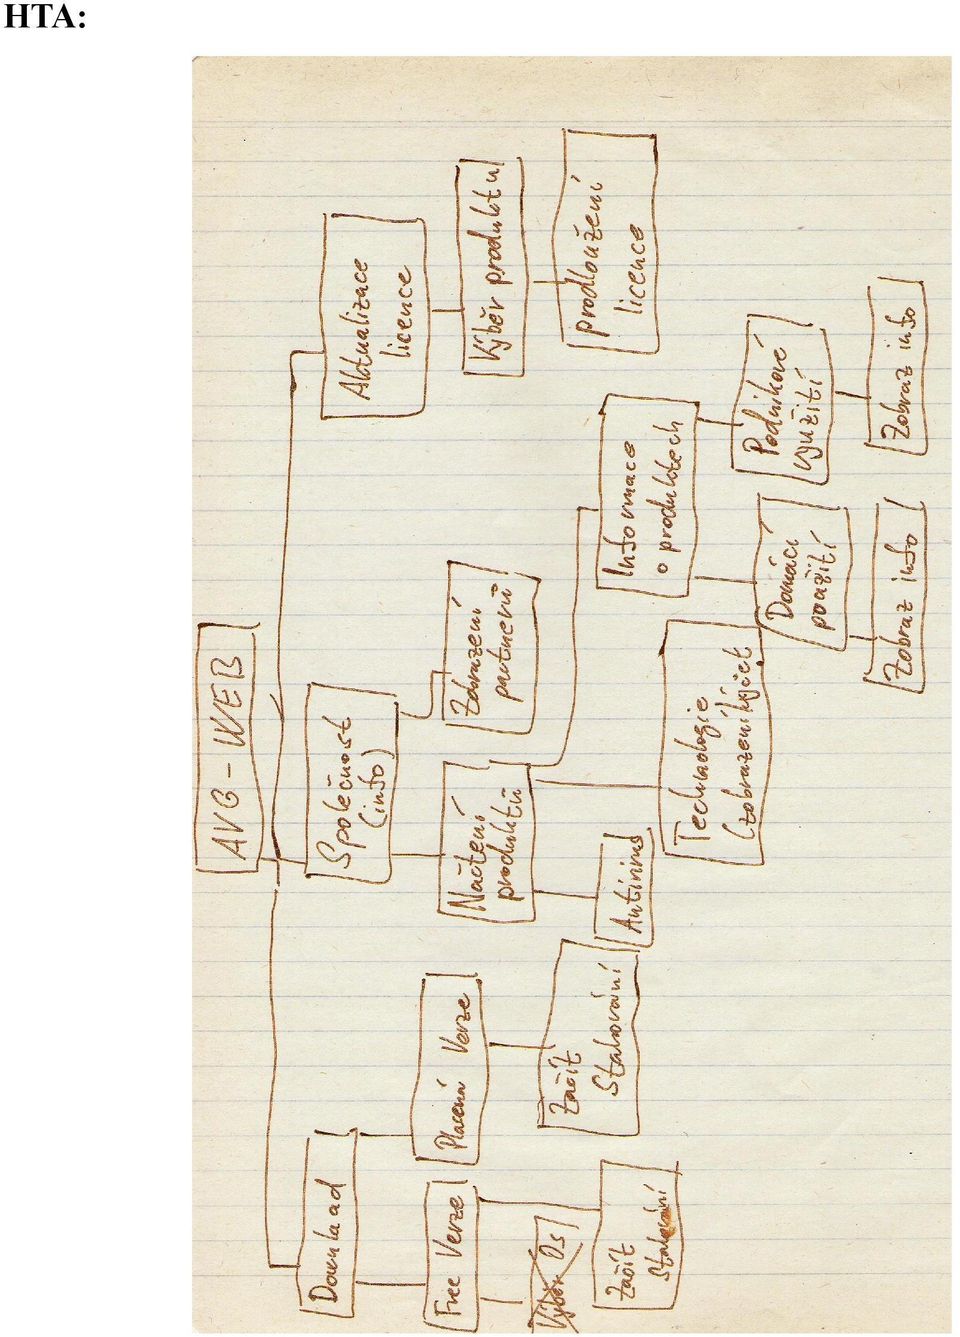 HTA:
AVG - WEB
Download
Free Verze
Výběr Os
Začít
Stahování
Placená Verze
Začít
Stahování
Společnost
(info)
Načtení
produktů
Antivirus
Technologie
(zobrazení
Informace
o produktech
Domácí
použití
Zobraz info
Podnikové
využití
Zobraz info
Zobrazení
partnerů
Aktualizace
licence
Výběr produktu
prodloužení
licence